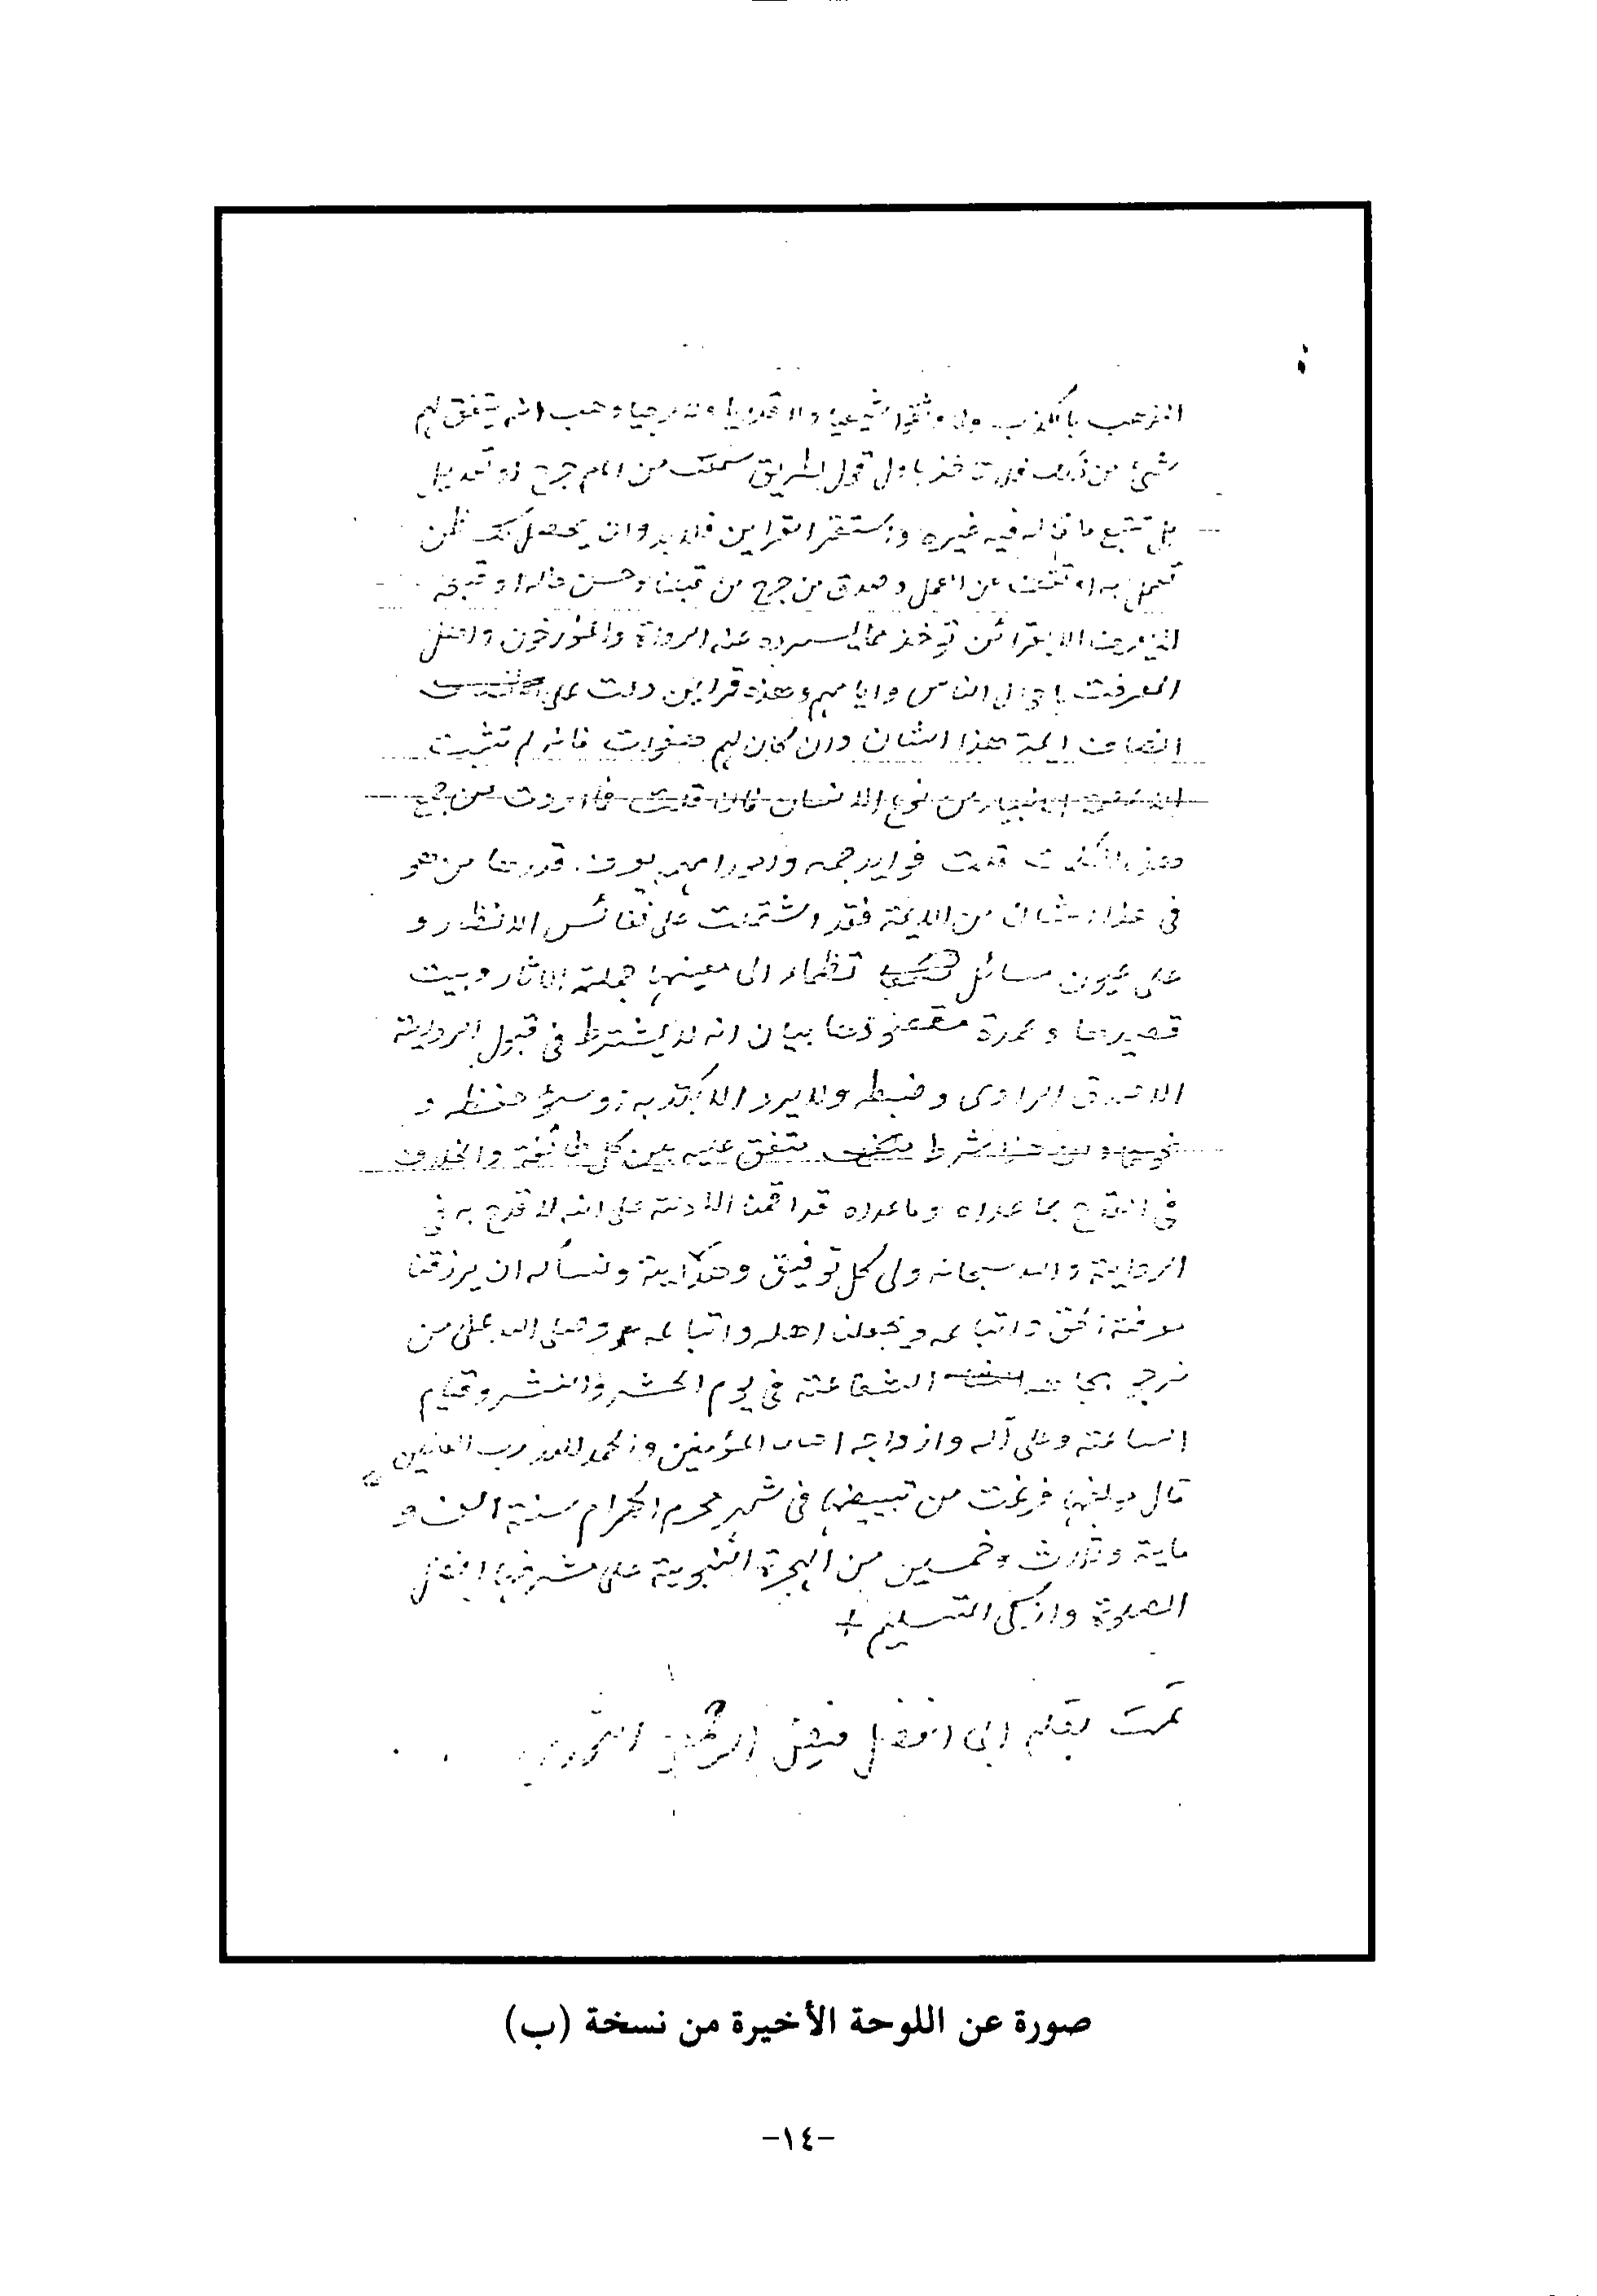 المذهب بالكذب ولا وثقوا شيعيا ولا قدريا ولا مرجيا وهب انه يتفق لهم
شئ من ذلك فلا تاخذ باول قول يطرق سمعك من امام جرح او تعديل
بل تتبع ما قاله فيه غيره واستقر القراين فلا بد وان يحصل لك ظن
تعمل به او تقف عن العمل
القرائن تؤخذ مما يسرده عنه الرواة والمؤرخون واهل
المعرفة باحوال الناس وايامهم وهذه قراين دلت على
انصاف ائمة هذا الشان وان كان لهم هفوات فانه لم تثبت
العصمة نوع الانسان فان قلت فما اردت من جمع
هذه الكلمات قلت فوايد جمة
في هذا الشان من الائمة فقد اشتملت على نفائس الانظار و
على عيون مسائل تظماء الى معينها حملة الاثار وبيت
قصيرها وعمدة بيان انه لا يشترط في قبول الرواية
الا صدق الراوى وضبطه ولا يرد الا بكذبه وسوء حفظه و
شرط متفق عليه بين كل طائفة والخلاف
في القدح بما عداه وما عداه قد اقمنا الادلة على انه لا قدح به في
الرواية والله سبحانه ولى كل توفيق وهداية ونسأله ان يرزقنا
معرفة الحق واتباعه ويجعلنا اهله واتباعه وصلى الله على من
نرجو بجاهه الشفاعة في يوم الحشر والنشر وقيام
الساعة وعلى آله وازواجه امهات المؤمنين والحمد لله رب العالمين
قال مولفها فرغت من تبييضها في شهر محرم الحرام سنة الف و
ماية وثلاث وخمسين من الهجرة النبوية على مشرفها افضل
الصلوة وازكى التسليم +
تمت بقلم ابى الفضل فيض الرحمن الثورى
صورة عن اللوحة الأخيرة من نسخة (ب)
-١٤-